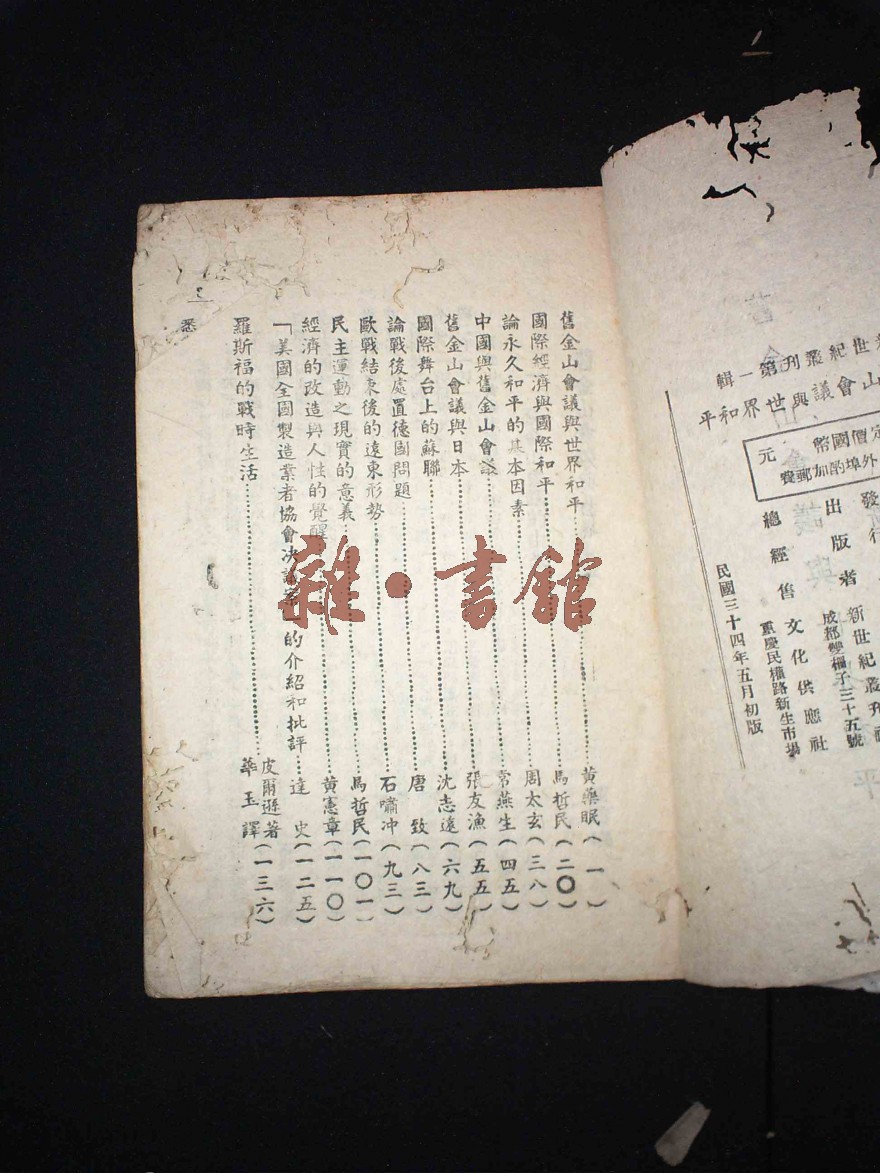 世紀叢刊第一輯
山會議與世界和平
定價國幣 元
外埠酌加郵費
發行
出版者 新世紀叢刊社
成都雙柵子三十五號
總經售 文化供應社
重慶民權路新生市場
民國三十四年五月初版
舊金山會議與世界和平……黃藥眠(一)
國際經濟與國際和平……馬哲民(二〇)
論永久和平的基本因素……周太玄(三八)
中國與舊金山會議……常燕生(四五)
舊金山會議與日本……張友漁(五五)
國際舞台上的蘇聯……沈志遠(六九)
論戰後處置德國問題……唐 致(八三)
歐戰結束後的遠東形勢……石嘯冲(九三)
民主運動之現實的意義……馬哲民(一〇一)
經濟的改造與人性的覺醒……黃憲章(一一〇)
「美國全國製造業者協會決議案」的介紹和批評……達 史(一二五)
羅斯福的戰時生活……皮爾遜著 華玉譯(一三六)
雜·書館